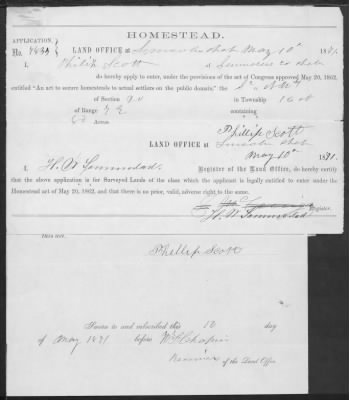 HOMESTEAD.
APPLICATION
No. 7439
LAND OFFICE at Lincoln Neb May 10th 1871.
I, Philip Scott of
do hereby apply to enter, under the provisions of the act of Congress approved May 20, 1862,
entitled "An act to secure homesteads to actual settlers on the public domain," the
of Section in Township 16 N
of Range 7 E containing
Acres
Phillip Scott
LAND OFFICE at Lincoln Neb
May 10th 1871.
I, H. W. Register of the Land Office, do hereby certify
that the above application is for Surveyed Lands of the class which the applicant is legally entitled to enter under the
Homestead act of May 20, 1862, and that there is no prior, valid, adverse right to the same.
H. W. Register.
Phillip Scott
Sworn to and subscribed this 10 day
of May 1871 before
of the Land Office